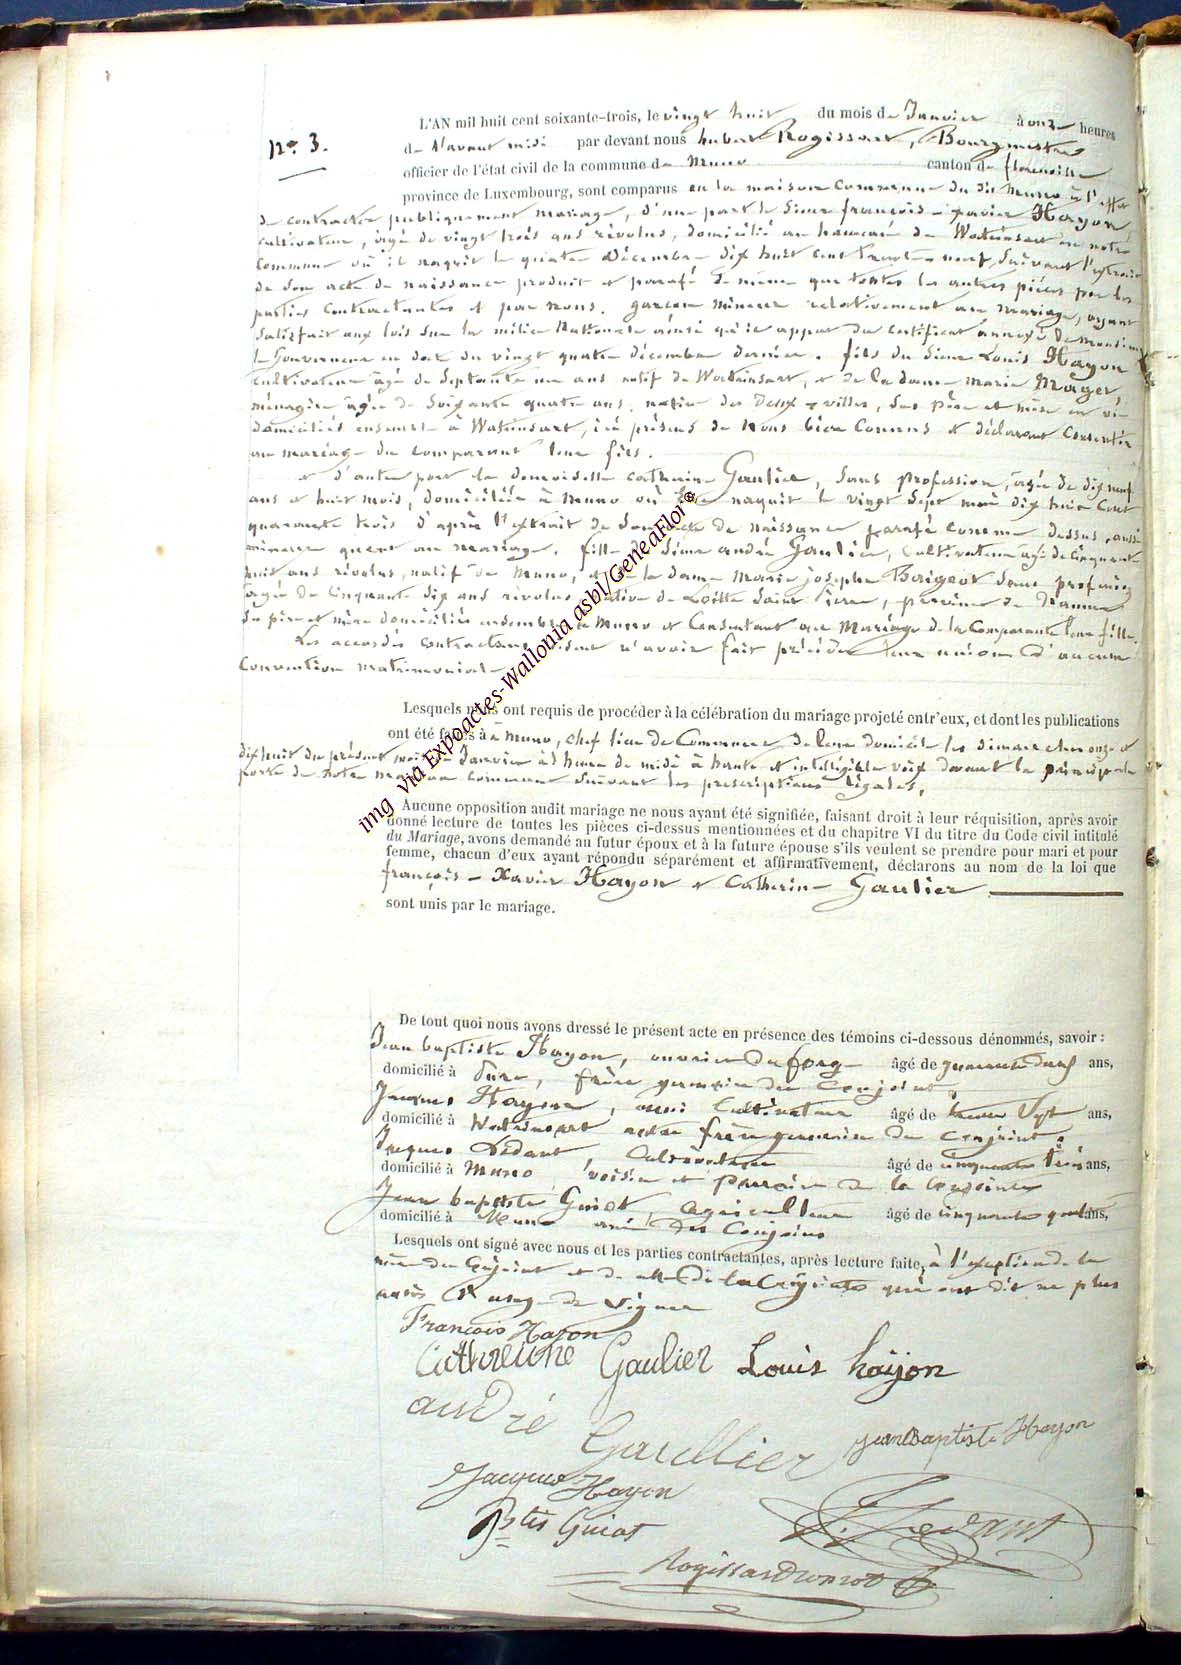 N° 3.
L'AN mil huit cent soixante-trois, le vingt huit du mois de Janvier à onze heures
de l'avant midi par devant nous hubert Rogissart, Bourgmestre
officier de l'état civil de la commune de Muno canton de florenville
province de Luxembourg, sont comparus en la maison commune du dit Muno à l'effet
de contracter publiquement mariage, d'une part le Sieur françois-xavier Hayon
cultivateur, âgé de vingt trois ans révolus, domicilié au hameau de Watrinsart en notre
commune où il naquit le quatre décembre dix huit cent trente neuf, suivant l'extrait
de son acte de naissance produit et parafé de même que toutes les autres pièces par les
parties contractantes et par nous. garçon mineur relativement au mariage, ayant
satisfait aux lois sur la milice Nationale ainsi qu'il appert du certificat annexé de monsieur
le Gouverneur en date du vingt quatre décembre dernier. fils du Sieur Louis Hayon
cultivateur âgé de septante un ans natif de Watrinsart, et de la dame marie Mager,
ménagère âgée de soixante quatre ans, native des deux-villes, ses père et mère en vie
domiciliés ensemble à Watrinsart, ici présens de nous bien connus et déclarant consentir
au mariage du comparant leur fils.
et d'autre part la demoiselle catherine Gaulier, sans profession, âgée de dix neuf
ans et huit mois, domiciliée à Muno où elle naquit le vingt sept mai dix huit cent
quarante trois d'après l'extrait de son acte de naissance parafé comme dessus, aussi
mineure quant au mariage. fille du Sieur andré Gaulier, cultivateur âgé de cinquante
huit ans révolus, natif de Muno, et de la dame Marie josephe Boigeot sans profession
âgée de cinquante dix ans révolus native de Saint Pierre, province de
Ses père et mère domiciliés ensemble à Muno et consentant au mariage de la comparante leur fille.
Les accordés contractans disent n'avoir fait précéder leur union d'aucune
convention matrimoniale.
Lesquels nous ont requis de procéder à la célébration du mariage projeté entr'eux, et dont les publications
ont été faites à à Muno, chef lieu de Commune de leur domicile les dimanches onze et
dix huit du présent mois de Janvier à l'heure de midi à haute et intelligible voix devant la principale
porte de notre maison commune suivant les prescriptions légales.
Aucune opposition audit mariage ne nous ayant été signifiée, faisant droit à leur réquisition, après avoir
donné lecture de toutes les pièces ci-dessus mentionnées et du chapitre VI du titre du Code civil intitulé
du Mariage, avons demandé au futur époux et à la future épouse s'ils veulent se prendre pour mari et pour
femme, chacun d'eux ayant répondu séparément et affirmativement, déclarons au nom de la loi que
françois-Xavier Hayon et Catherine Gaulier
sont unis par le mariage.
De tout quoi nous avons dressé le présent acte en présence des témoins ci-dessous dénommés, savoir :
Jean baptiste Hayon, ouvrier de forge âgé de quarante deux ans,
domicilié à frère germain du conjoint,
Jacques Hayon, aussi cultivateur âgé de trente sept ans,
domicilié à Watrinsart autre frère germain du conjoint.
Jacques Lédant, cultivateur âgé de cinquante trois ans,
domicilié à Muno, voisin et parrain de la conjointe
Jean baptiste Guiot, agriculteur âgé de cinquante quatre ans,
domicilié à Muno ami des conjoins
Lesquels ont signé avec nous et les parties contractantes, après lecture faite, à l'exception de la
mère du conjoint et de celle de la conjointe qui ont dit ne plus
avoir l'usage de signer
François Hayon
Catherine Gaulier Louis hayon
andré Gaullier jean Baptiste Hayon
Jacques Hayon
Btis Guiot J. Ledant
Rogissart
img via Expoactes-Wallonia asbl/GeneaFlor®